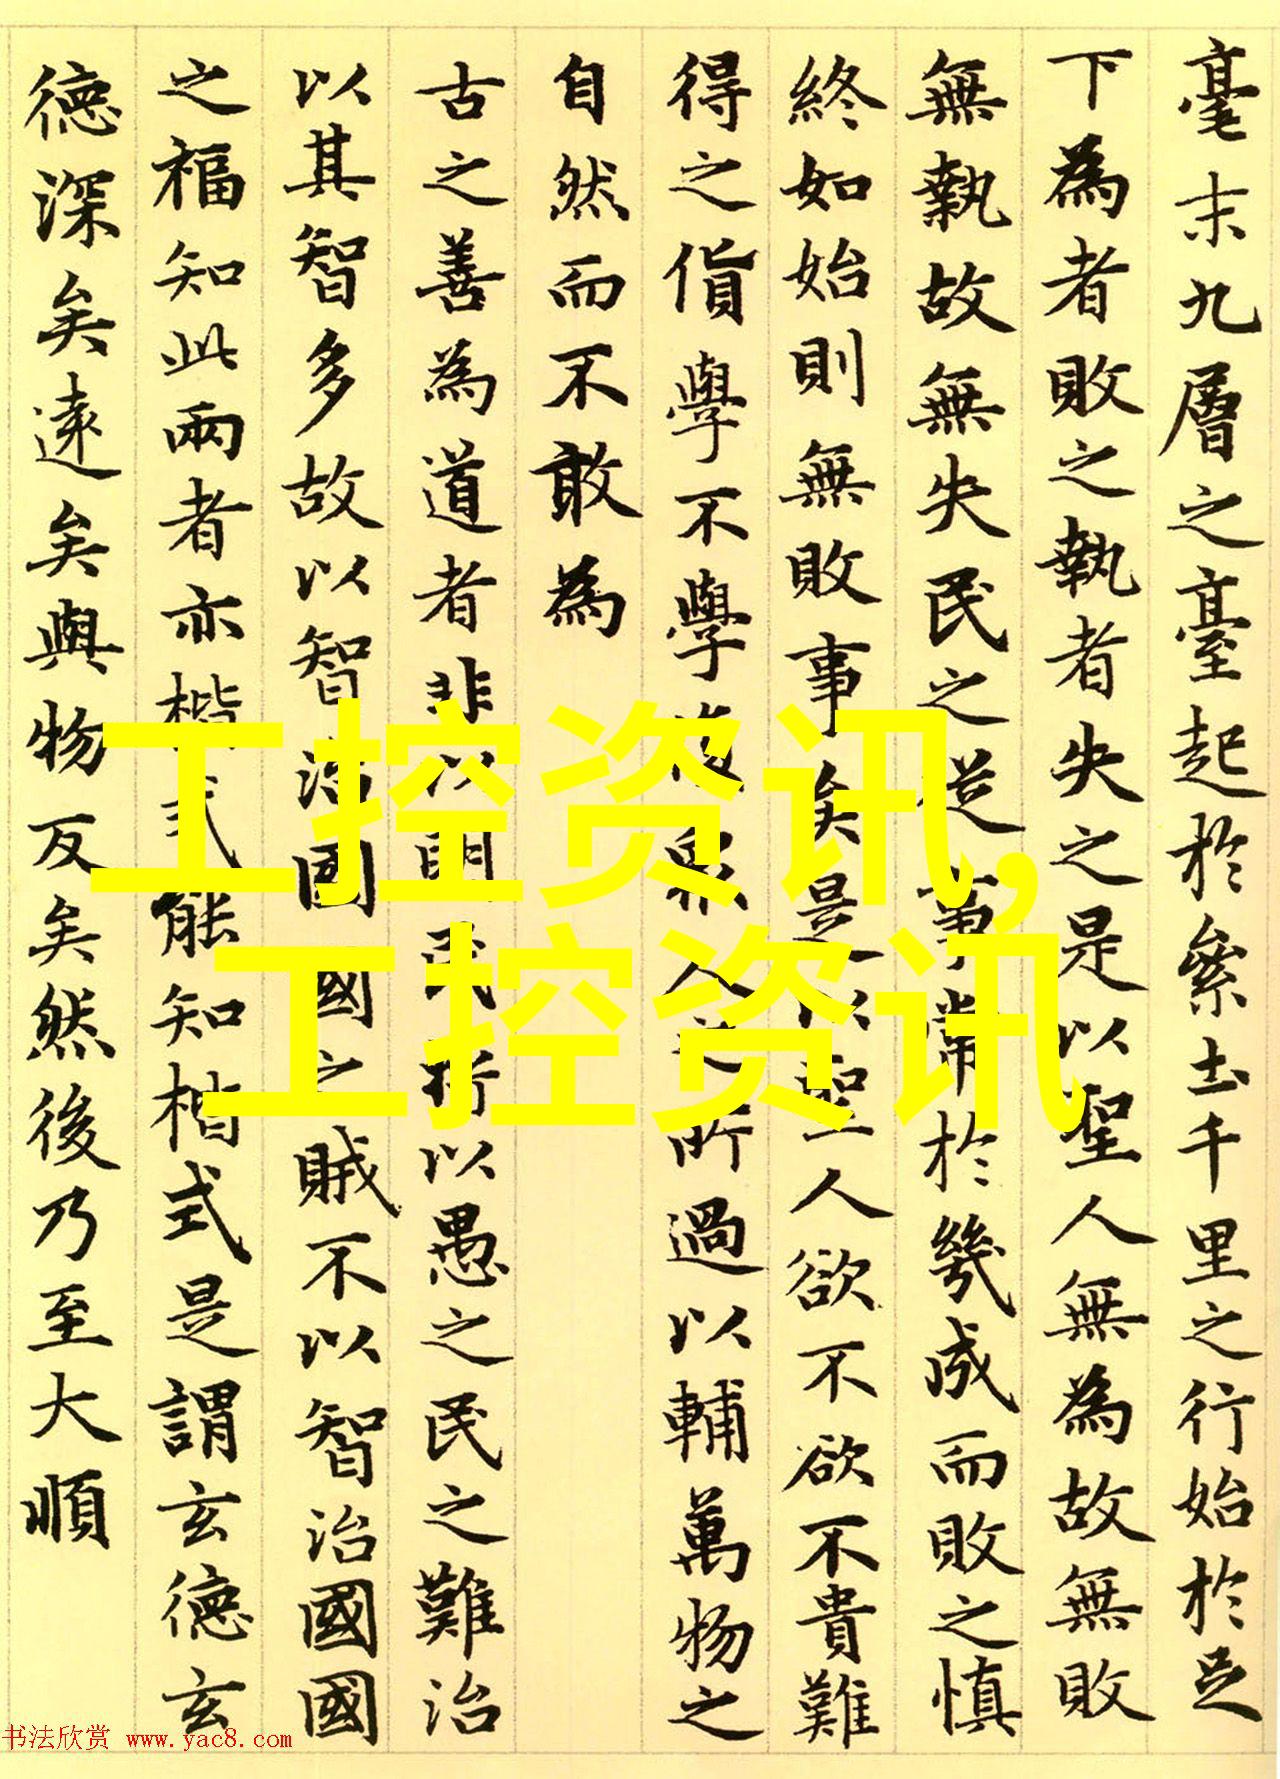 毫末九層之臺起於絫土千里之行始於足
下為者敗之執者失之是以聖人無為故無敗
無執故無失民之從事常於幾成而敗之慎
終如始則無敗事矣是以聖人欲不欲不貴難
得之貨學不學復衆人之所過以輔萬物之
自然而不敢為
古之善為道者非以明民將以愚之民之難治
以其智多故以智治國國之賊不以智治國國
之福知此兩者亦楷式能知楷式是謂玄德玄
德深矣遠矣與物反矣然後乃至大順
工控资讯,
工控资讯
书法欣赏 www.yac8.com